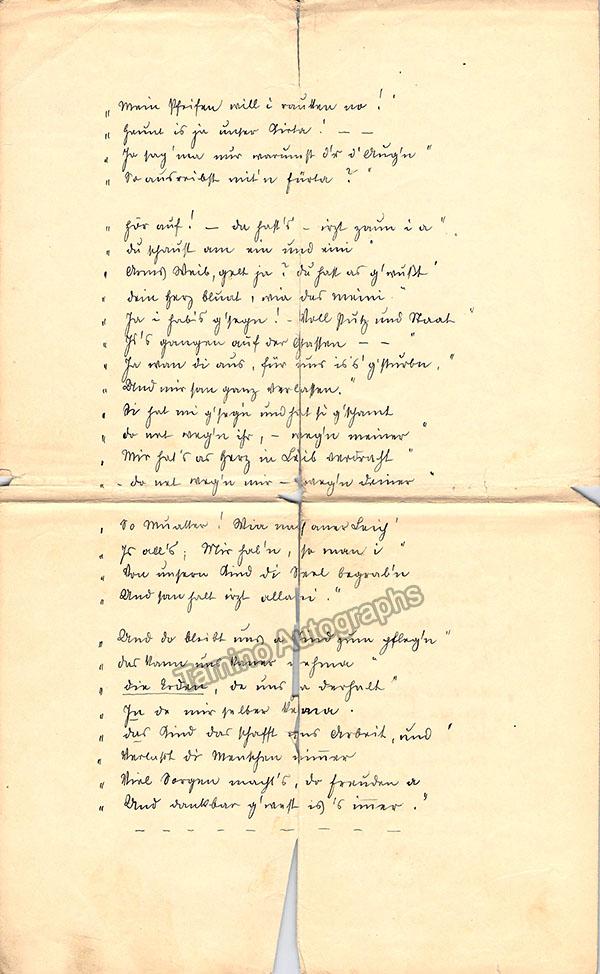 „ Mein Pfeifen will i rauken no! "
„ Heunt is ja unser Kirta! — —
„ Jo sag' ma nur warumst d'r d' Aug'n "
„ So ausreibst mit'n Fürta? "
„ Hör auf! — da hast's – irzt zaun i a "
„ du schaust am ein und eini "
„ Arms Weib, gelt ja? du hast as g'wußt "
„ dein Herz bluat, wia das meini "
„ Ja i hab's g'segn! – Voll Putz und Staat "
„ Is's gangen auf der Gassen — — "
„ Ja wan di aus, für uns is's g'sturbn, "
„ Und mir san ganz verlassen. "
„ Si hat mi g'seg'n und hat si g'schamt
„ do net weg'n ihr, – weg'n meiner "
„ Mir hat's as Herz in Leib verdraht "
„ – do net weg'n mir – weg'n deiner "
„ So Muatter! Wia nach aner Leich'
„ Is all's; Mir hab'n, so man i "
„ Von unsern Kind di Seel begrab'n
„ Und san halt irzt allani. "
„ Und do bleibt uns a Kind zum pfleg'n "
„ das kann uns kaner nehma "
„ die Erden, de uns a derhalt "
„ In de mir selber kema.
„ das Kind das schafft uns Arbeit, und "
„ Verlaßt di Menschen nimmer
„ Viel Sorgen macht's, do Freuden a
„ Und dankbar g'west is's immer. "
Tamino Autographs